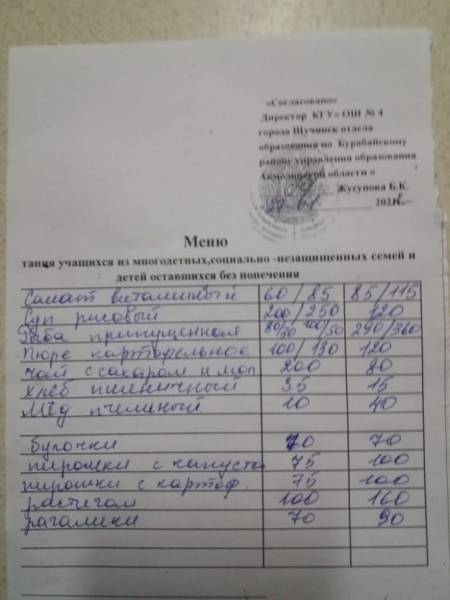 «Согласовано»
Директор КГУ» ОШ № 4
города Щучинск отдела
образования по Бурабайскому
району управления образования
Акмолинской области »
Жусупова Б.К.
Меню
тания учащихся из многодетных,социально -незащищенных семей и
детей оставшихся без попечения
Салат витаминный 60/85 85/115
Суп рисовый 200/250 120
Рыба припущенная 80/30 100/50 290/360
Пюре картофельное 100/130 120
Чай с сахаром и мол 200 80
Хлеб пшеничный 35 15
Мёд пчелиный 10 40
булочки 70 70
пирожки с капуста 75 100
пирожки с картоф. 75 100
растегаи 100 160
рагалики 70 90